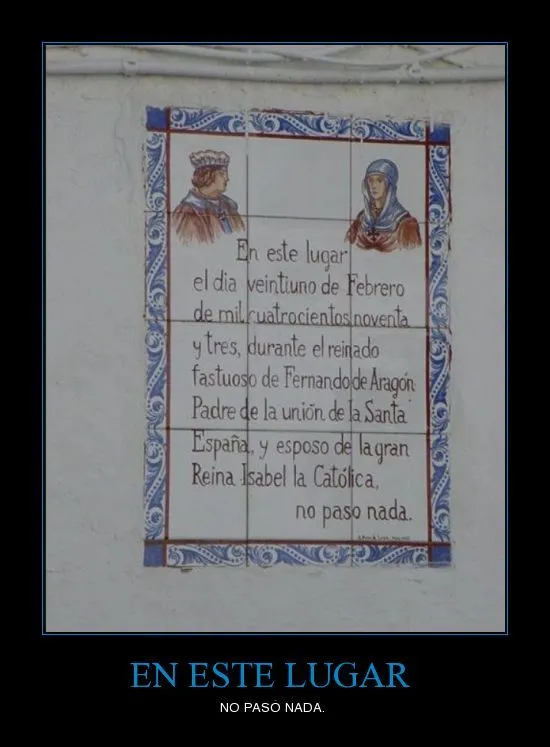 En este lugar
el dia veintiuno de Febrero
de mil cuatrocientos noventa
y tres, durante el reinado
fastuoso de Fernando de Aragón
Padre de la unión de la Santa
España, y esposo de la gran
Reina Isabel la Católica,
no paso nada.
EN ESTE LUGAR
NO PASO NADA.